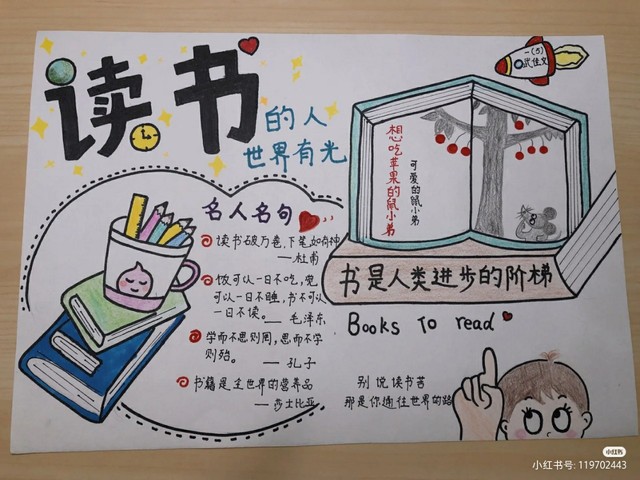 读书
的人
世界有光
一(5)
武佳文
想吃苹果的鼠小弟
可爱的鼠小弟
名人名句
读书破万卷,下笔如有神
——杜甫
饭可以一日不吃,觉
可以一日不睡,书不可以
一日不读。——毛泽东
学而不思则罔,思而不学
则殆。——孔子
书籍是全世界的营养品
——莎士比亚
书是人类进步的阶梯
Books To read
别说读书苦
那是你通往世界的路
小红书
小红书号: 119702443